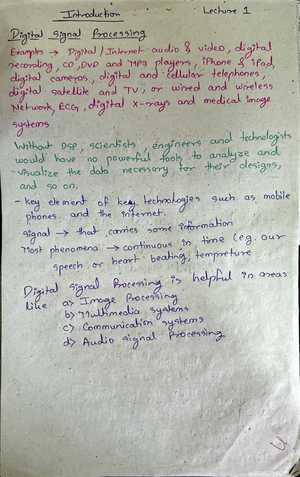 Introduction
Lecture 1
Digital Signal Processing
Examples → Digital / Internet audio & video, digital
recording, CD, DVD and MP3 players, iPhone & iPad,
digital cameras, digital and cellular telephones,
digital satellite and TV, or wired and wireless
Network, ECG, digital X-rays and medical image
systems
Without DSP, scientists, engineers and technologists
would have no powerful tools to analyze and
visualize the data necessary for their designs,
and so on.
- key element of key technologies such as mobile
phones and the internet.
Signal → that carries some information
Most phenomena → continuous in time (eg. our
speech or heart beating, tempreture
Digital Signal Processing is helpful in areas
like a) Image Processing
b) Multimedia systems
c) Communication systems
d) Audio signal Processing